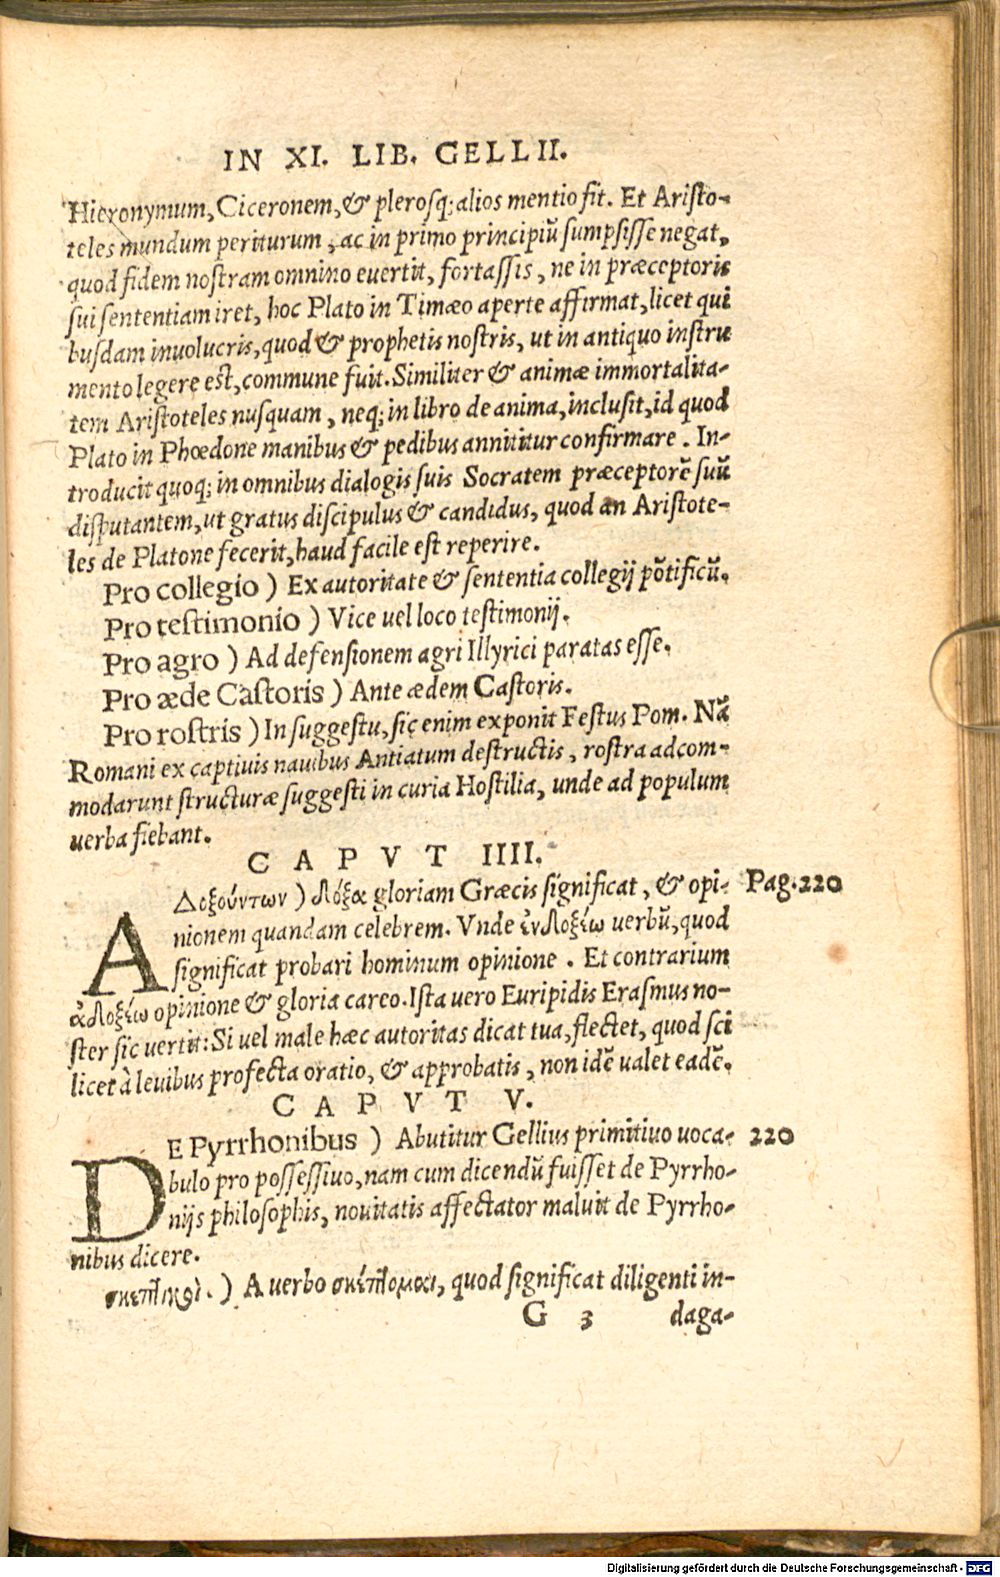 IN XI. LIB. GELLII.
Hieronymum, Ciceronem, & plerosq; alios mentio fit. Et Aristo-
teles mundum periturum, ac in primo principiũ sumpsisse negat,
quod fidem nostram omnino euertit, fortassis, ne in præceptoris
sui sententiam iret, hoc Plato in Timæo aperte affirmat, licet qui
busdam inuolucris, quod & prophetis nostris, ut in antiquo instru
mento legere est, commune fuit. Similiter & animæ immortalita-
tem Aristoteles nusquam, neq; in libro de anima, inclusit, id quod
Plato in Phœdone manibus & pedibus annititur confirmare. In-
troducit quoq; in omnibus dialogis suis Socratem præceptorẽ suũ
disputantem, ut gratus discipulus & candidus, quod an Aristote-
les de Platone fecerit, haud facile est reperire.
Pro collegio ) Ex autoritate & sententia collegij põtificũ.
Pro testimonio ) Vice uel loco testimonij.
Pro agro ) Ad defensionem agri Illyrici paratas esse.
Pro æde Castoris ) Ante ædem Castoris.
Pro rostris ) In suggestu, sic enim exponit Festus Pom. Nã
Romani ex captiuis nauibus Antiatum destructis, rostra adcom-
modarunt structuræ suggesti in curia Hostilia, unde ad populum
uerba fiebant.
CAPVT IIII.
AΔοξούντων ) δόξα gloriam Græcis significat, & opi- Pag. 220
nionem quandam celebrem. Vnde ἐνδοξέω uerbũ, quod
significat probari hominum opinione. Et contrarium
ἀδοξέω opinione & gloria careo. Ista uero Euripidis Erasmus no-
ster sic uertit: Si uel male hæc autoritas dicat tua, flectet, quod sci
licet à leuibus profecta oratio, & approbatis, non idẽ ualet eadẽ.
CAPVT V.
DE Pyrrhonibus ) Abutitur Gellius primitiuo uoca- 220
bulo pro possessiuo, nam cum dicendũ fuisset de Pyrrho-
nijs philosophis, nouitatis affectator maluit de Pyrrho-
nibus dicere.
σκεπτικοὶ. ) A uerbo σκέπτομαι, quod significat diligenti in-
G 3 daga-
Digitalisierung gefördert durch die Deutsche Forschungsgemeinschaft - DFG